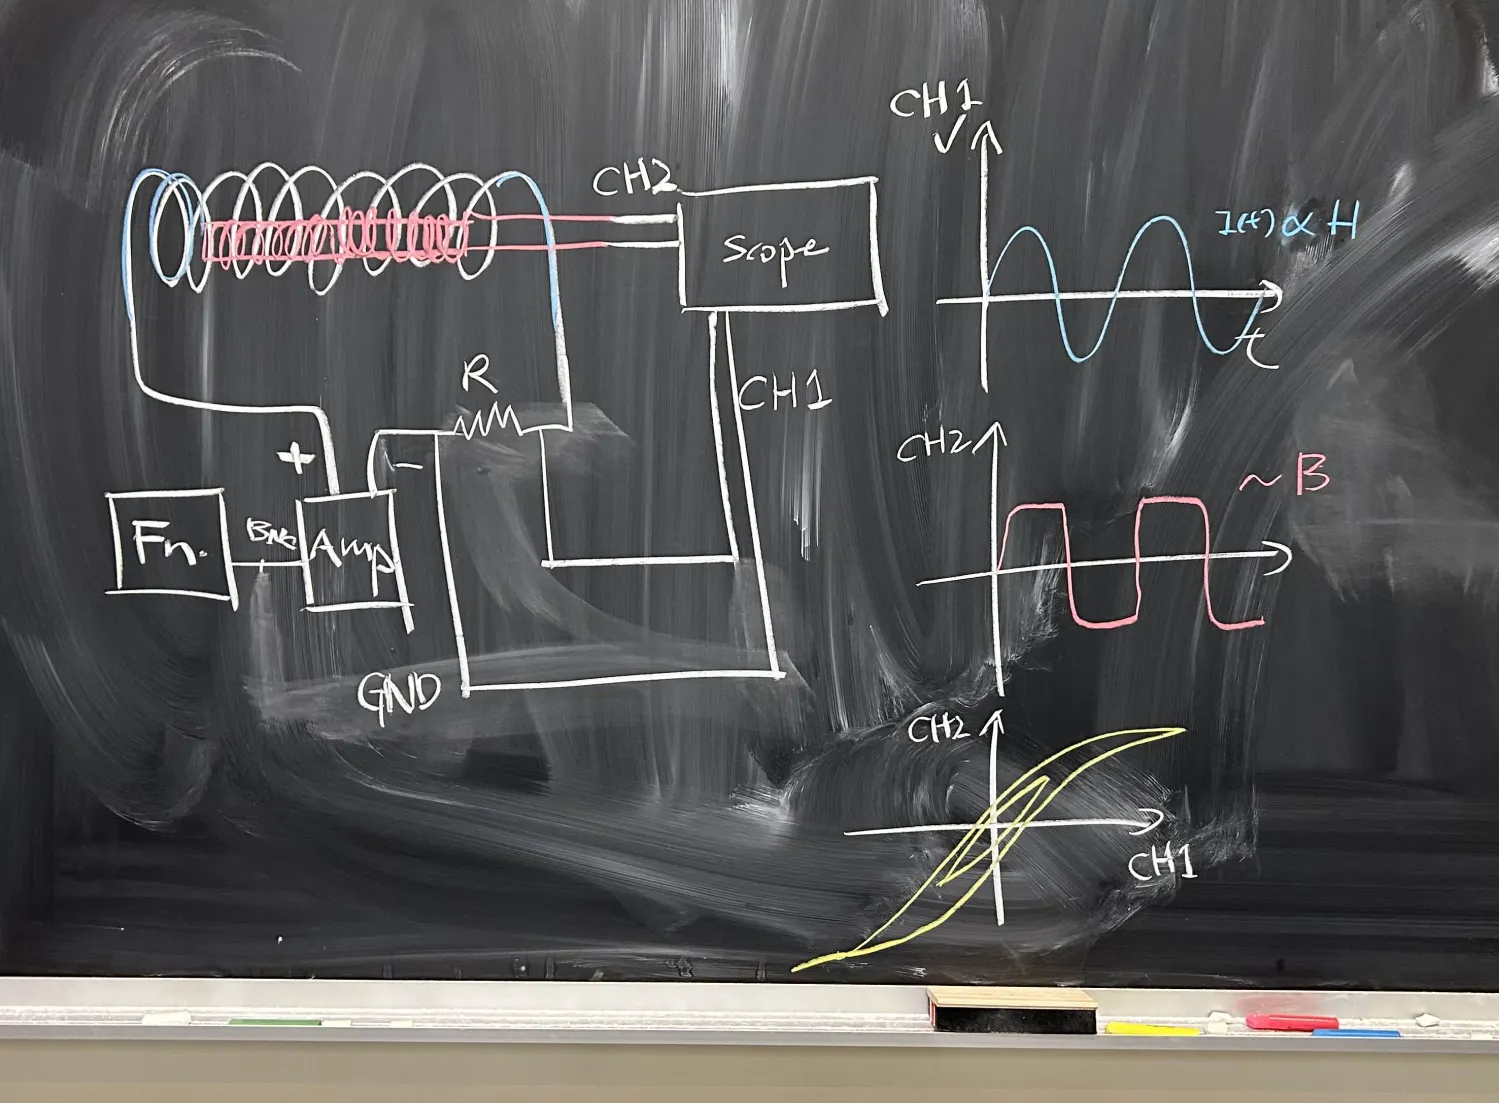 CH2
Scope
R
CH1
+
-
Fn.
BNC
Amp
GND
CH1
V
I(t) ∝ H
t
CH2
~ B
CH2
CH1